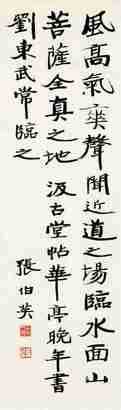 風高氣爽聲聞近道之場臨水面山
菩薩全真之地 汲古堂帖華亭晚年書
劉東武常臨之
張伯英